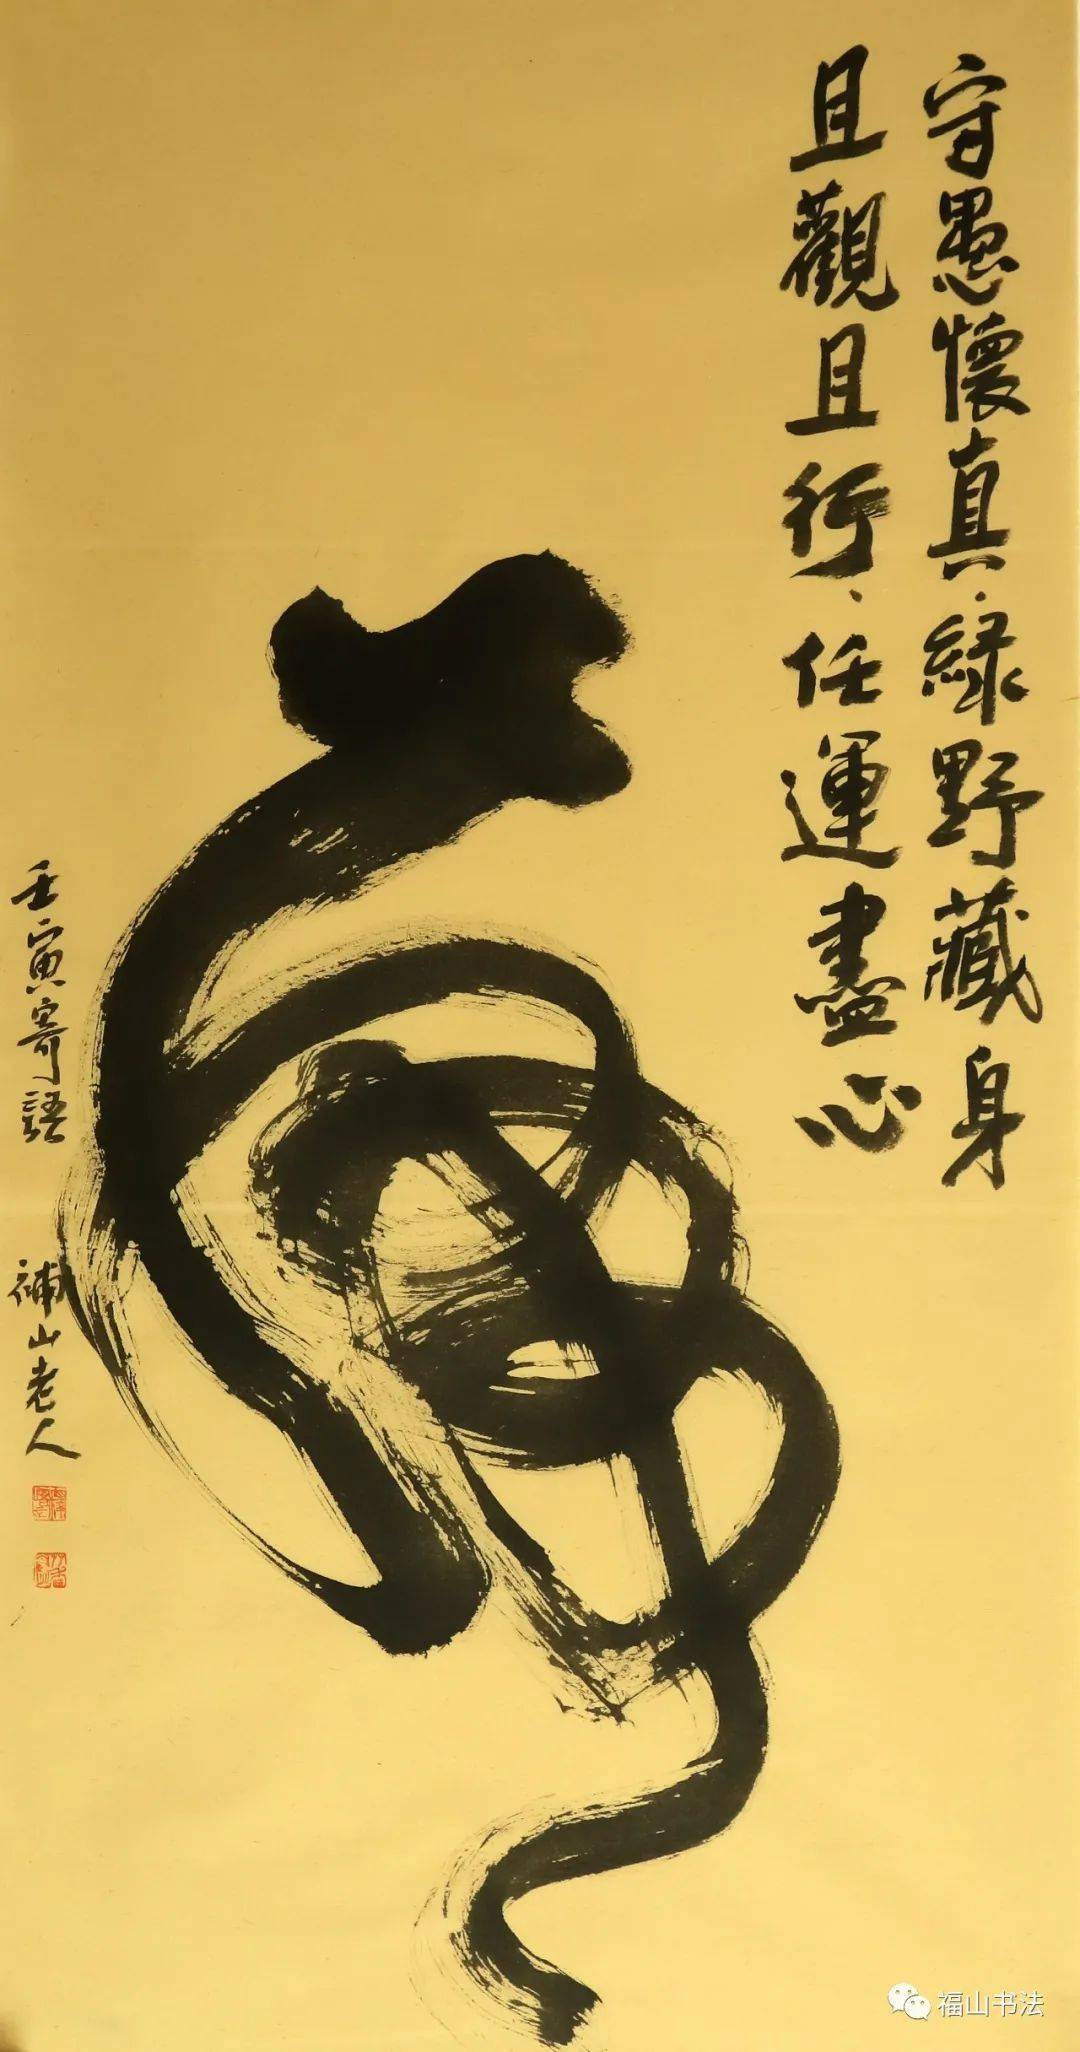 守愚懷真、緑野藏身
且觀且行、任運盡心
壬寅寄語
補山老人
福山书法